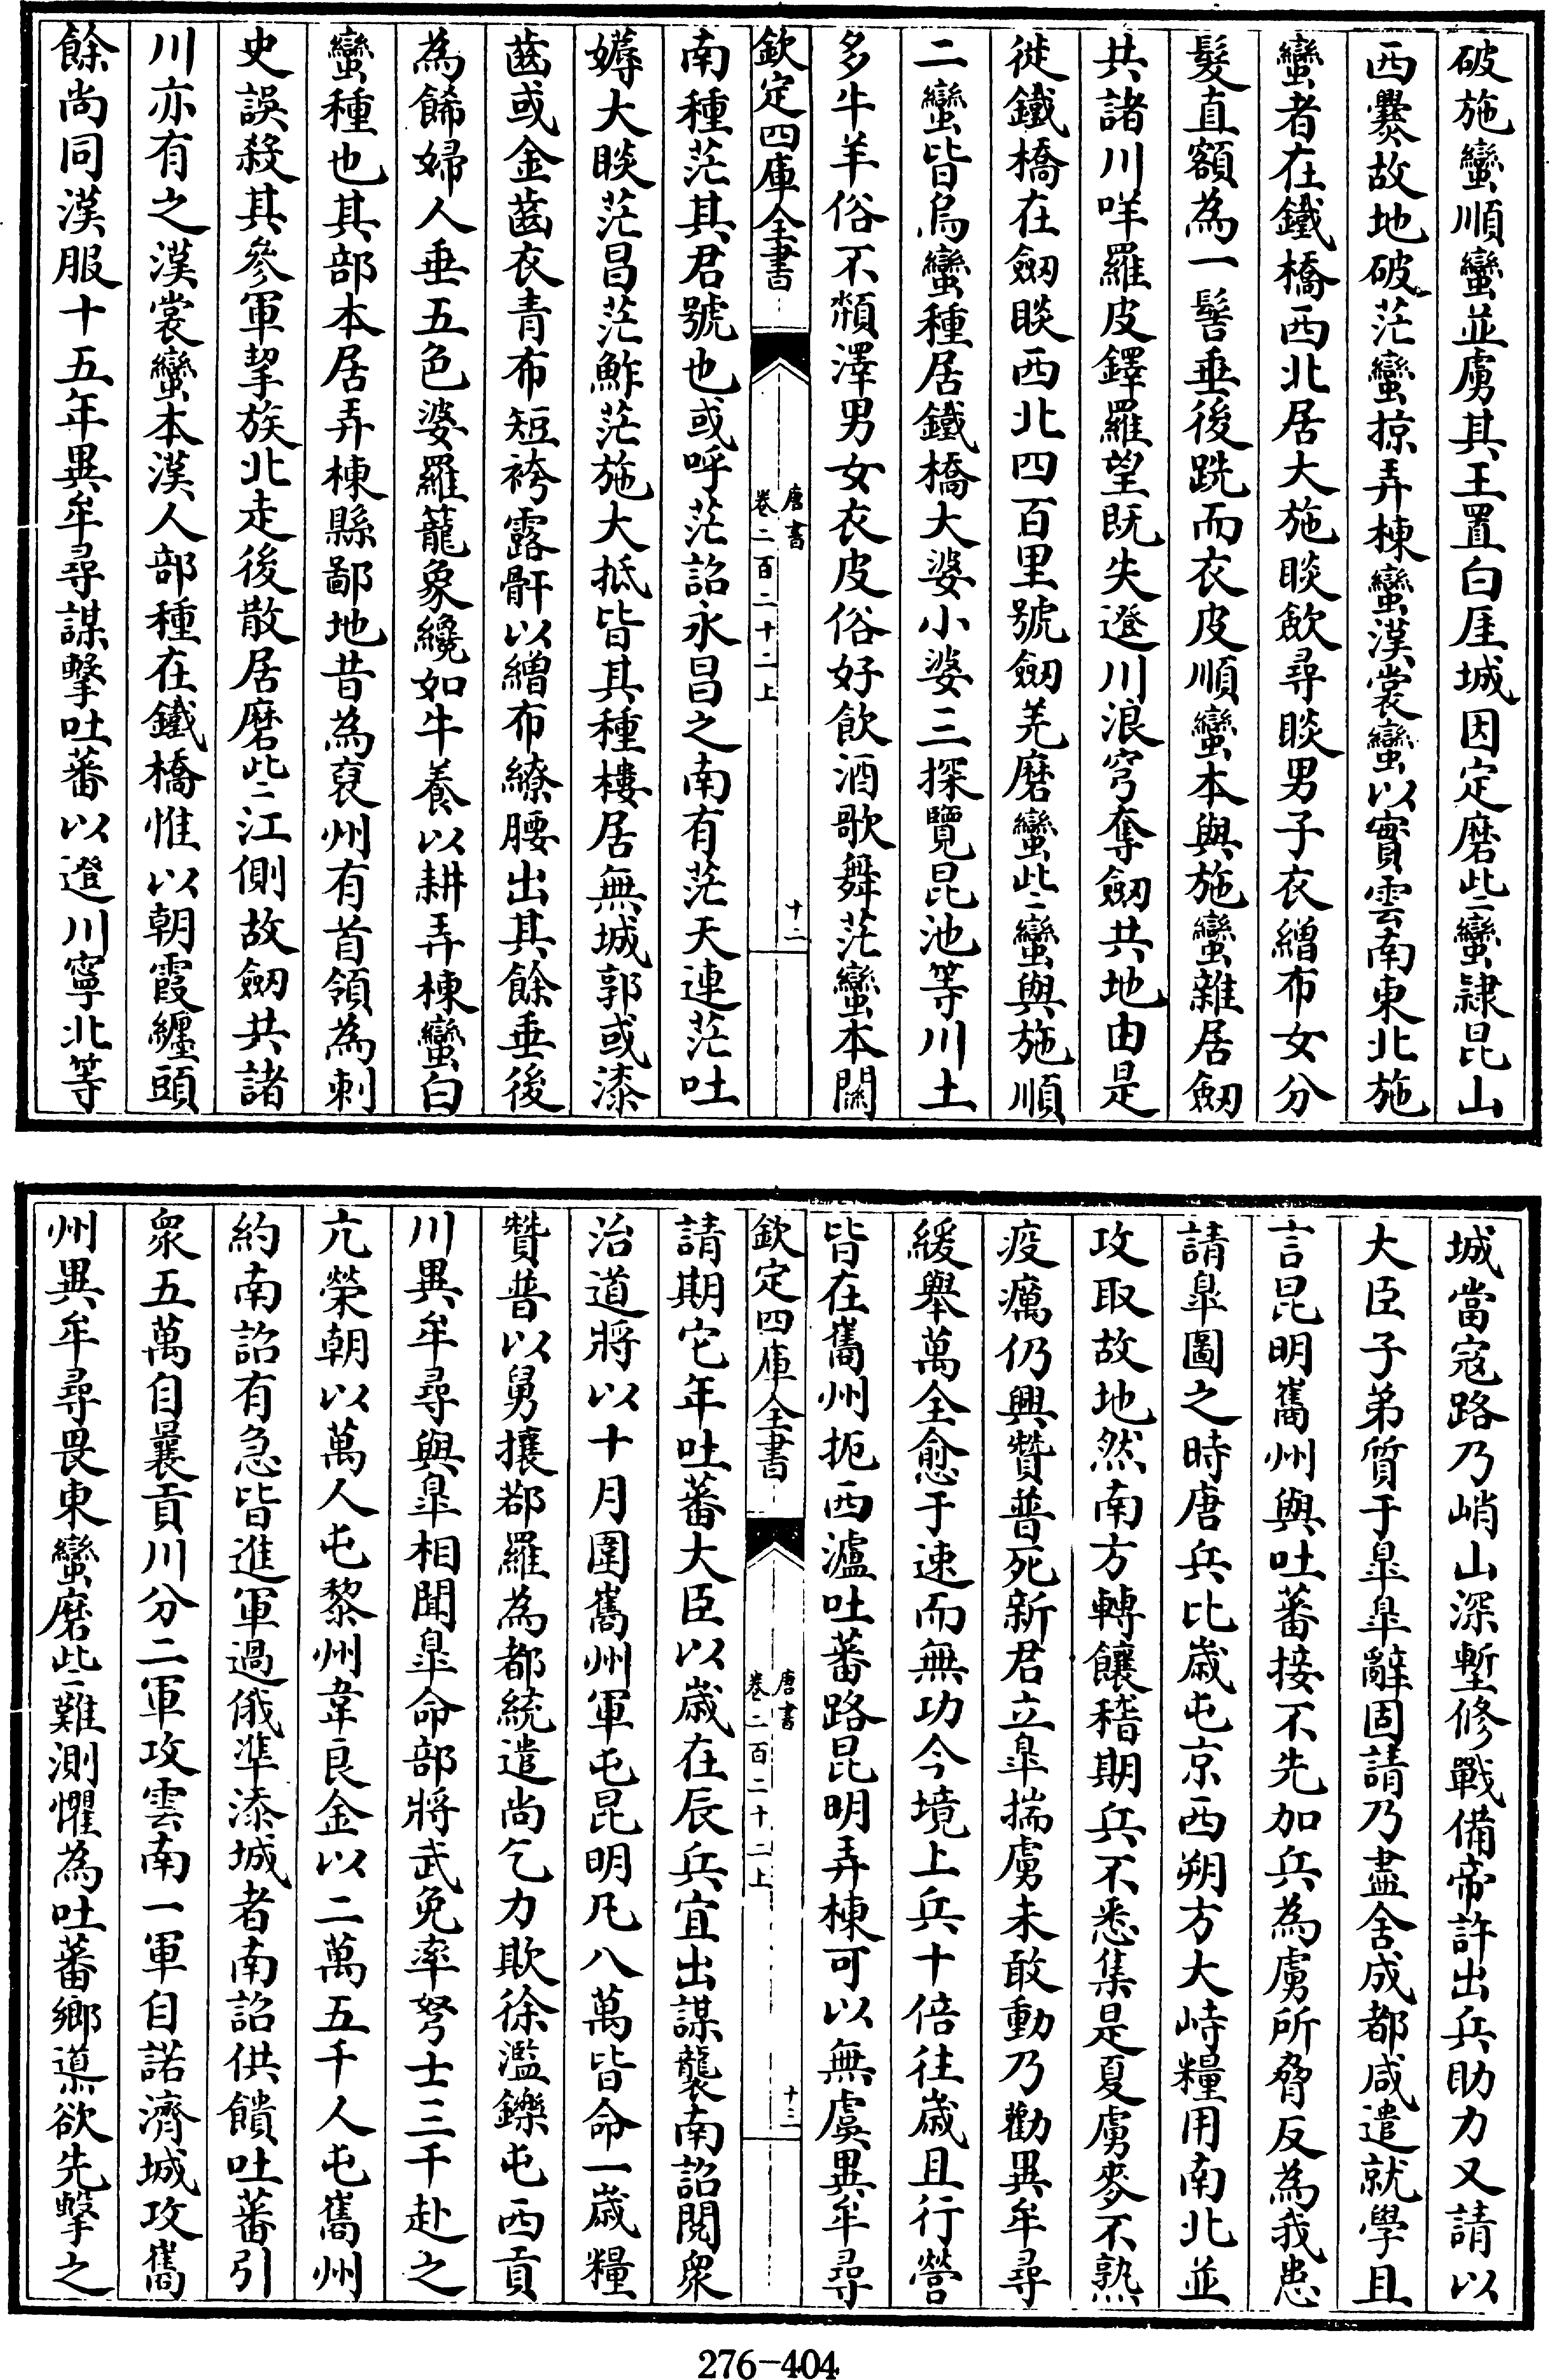 破施蠻順蠻並虜其王置白厓城因定磨些蠻隷昆山
西爨故地破茫蠻掠弄棟蠻漢裳蠻以實雲南東北施
蠻者在鐵橋西北居大施睒歛尋睒男子衣繒布女分
髮直額為一髻垂後跣而衣皮順蠻本與施蠻雜居劒
共諸川咩羅皮鐸羅望既失邆川浪穹奪劒共地由是
徙鐵橋在劒睒西北四百里號劒羌磨蠻些蠻與施順
二蠻皆烏蠻種居鐵橋大婆小婆三探覽昆池等川土
多牛羊俗不頮澤男女衣皮俗好飲酒歌舞茫蠻本關
欽定四庫全書
唐書
卷二百二十二上
十二
南種茫其君號也或呼茫詔永昌之南有茫天連茫吐
媷大睒茫昌茫鮓茫施大抵皆其種樓居無城郭或漆
齒或金齒衣青布短袴露骭以繒布繚腰出其餘垂後
為餙婦人垂五色婆羅籠象纔如牛養以耕弄棟蠻白
蠻種也其部本居弄棟縣鄙地昔為裒州有首領為刺
史誤殺其參軍挈族北走後散居磨些江側故劒共諸
川亦有之漢裳蠻本漢人部種在鐵橋惟以朝霞纏頭
餘尚同漢服十五年異牟尋謀擊吐蕃以邆川寧北等
城當宼路乃峭山深塹修戰備帝許出兵助力又請以
大臣子弟質于臯臯辭固請乃盡舍成都咸遣就學且
言昆明巂州與吐蕃接不先加兵為虜所脅反為我患
請臯圖之時唐兵比嵗屯京西朔方大峙糧用南北並
攻取故地然南方轉饟稽期兵不悉集是夏虜麥不熟
疫癘仍興贊普死新君立臯揣虜未敢動乃勸異牟尋
緩舉萬全愈于速而無功今境上兵十倍往嵗且行營
皆在巂州扼西瀘吐蕃路昆明弄棟可以無虞異牟尋
欽定四庫全書
唐書
卷二百二十二上
十三
請期它年吐蕃大臣以嵗在辰兵宜出謀襲南詔閱衆
治道將以十月圍巂州軍屯昆明凡八萬皆命一嵗糧
贊普以舅攘鄀羅為都統遣尚乞力欺徐濫鑠屯西貢
川異牟尋與臯相聞臯命部將武免率弩士三千赴之
亢榮朝以萬人屯黎州韋良金以二萬五千人屯巂州
約南詔有急皆進軍過俄準添城者南詔供饋吐蕃引
衆五萬自曩貢川分二軍攻雲南一軍自諾濟城攻巂
州異牟尋畏東蠻磨些難測懼為吐蕃鄉導欲先擊之
276-404